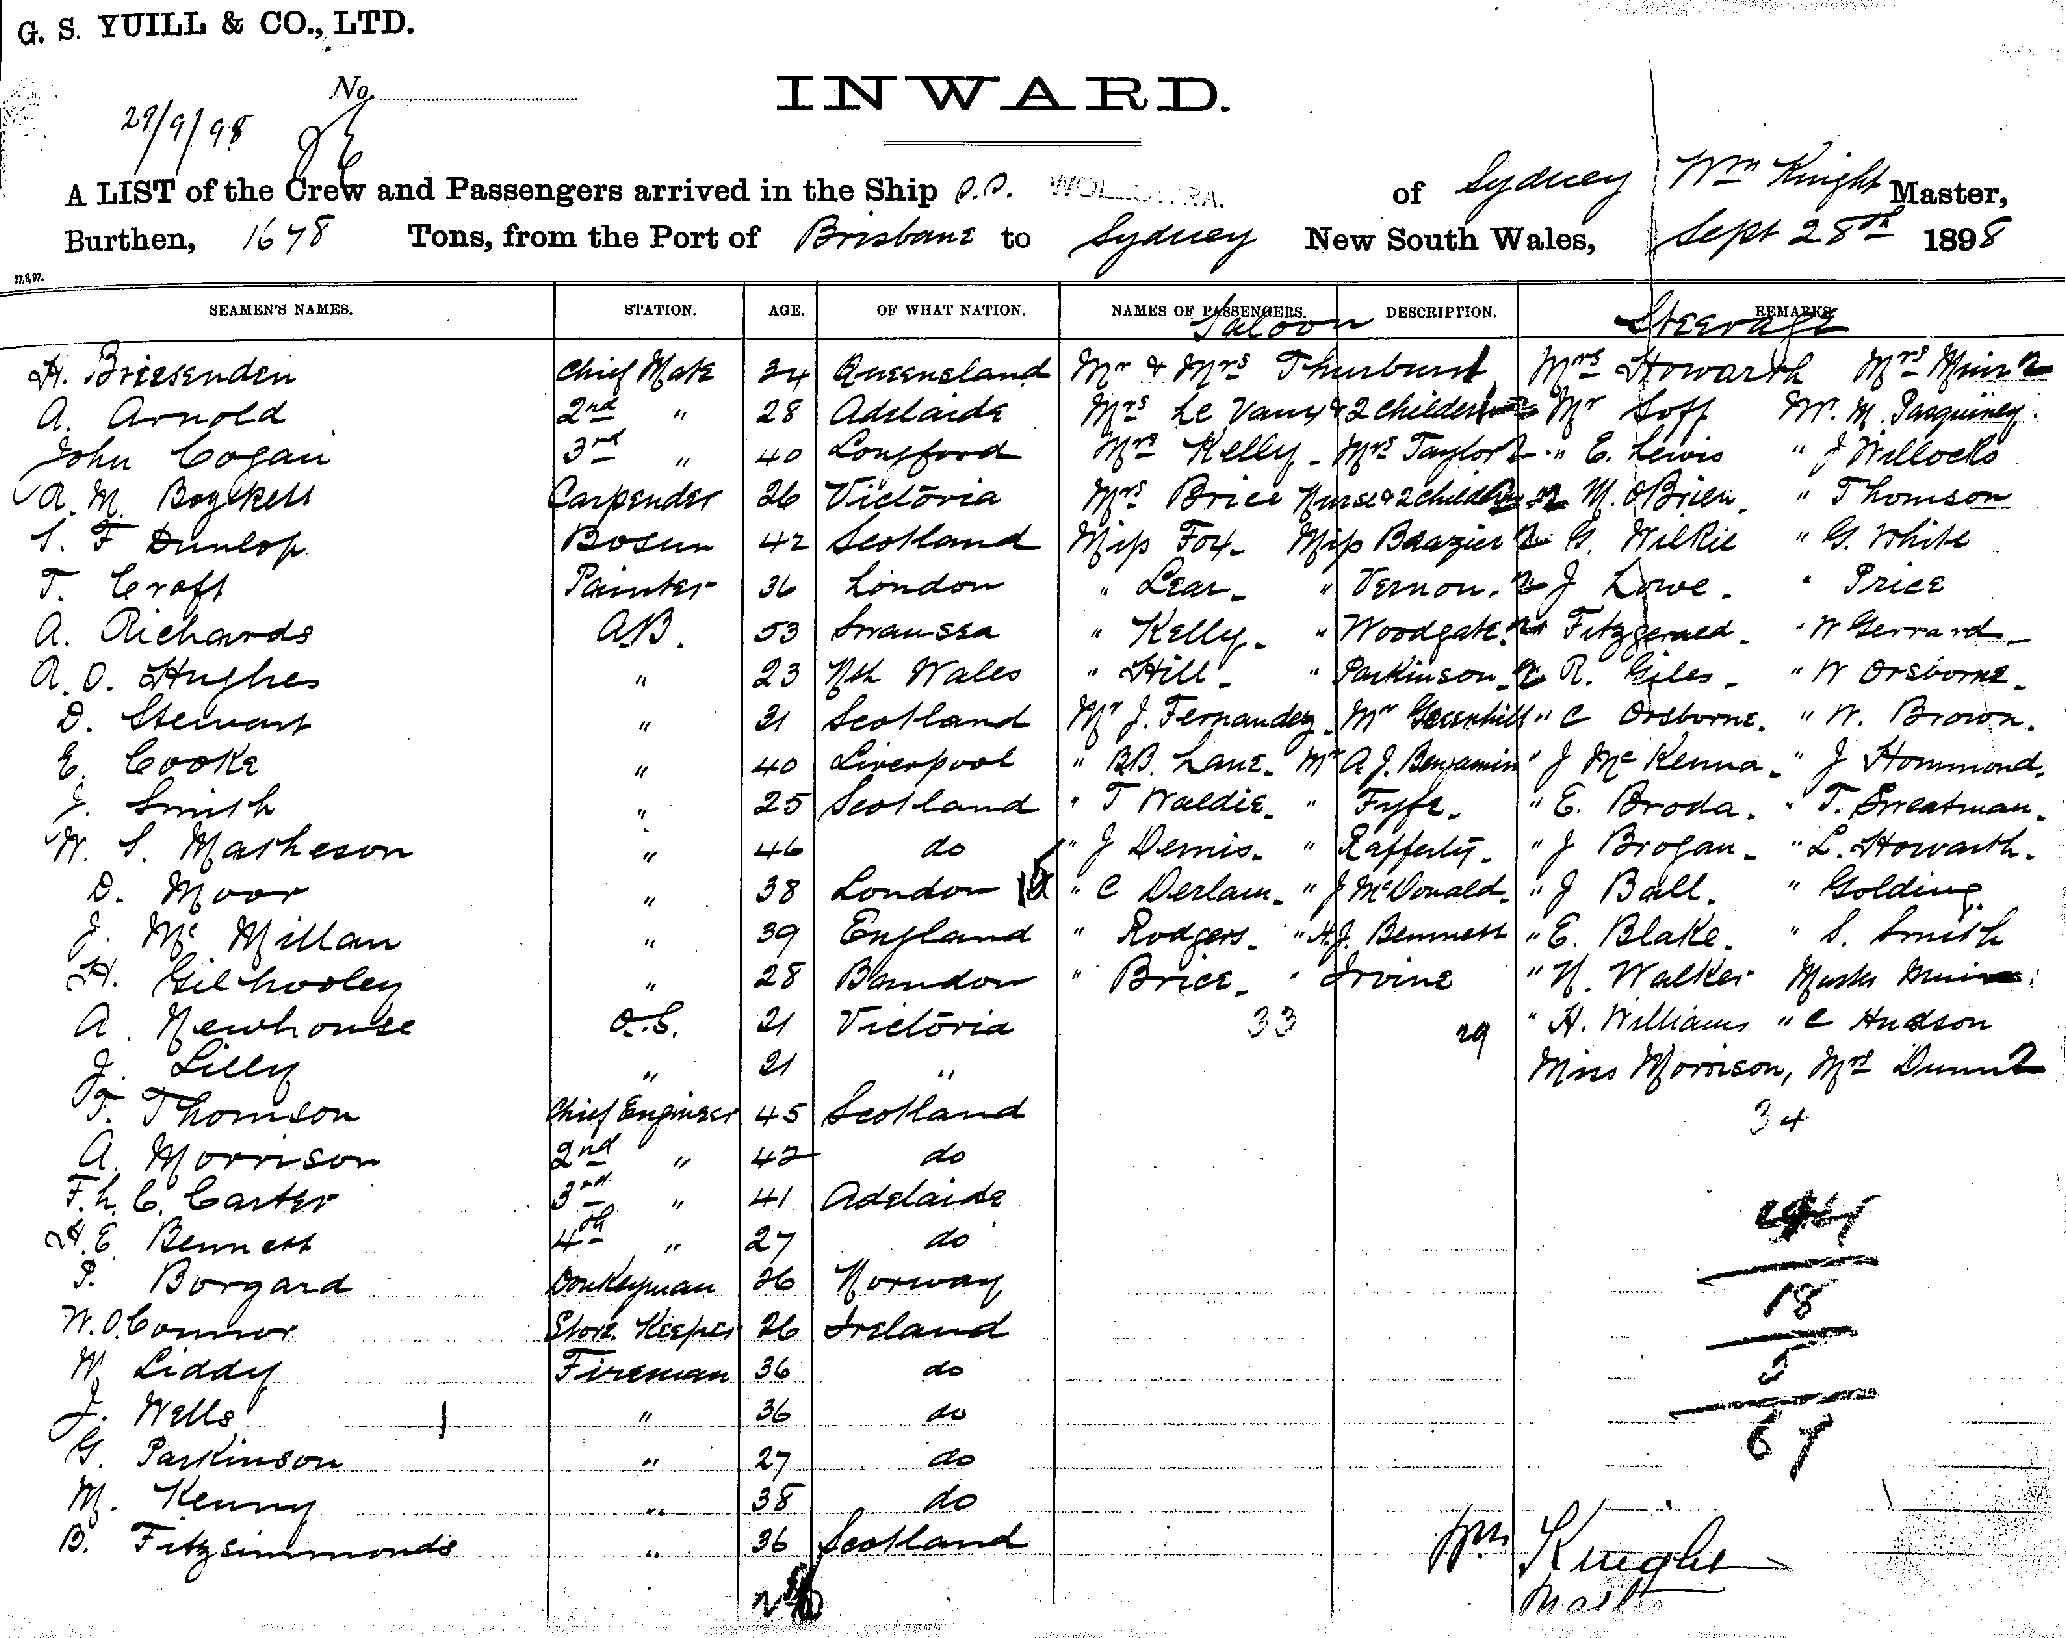 G. S. YUILL & CO., LTD.
No.
INWARD.
29/9/98
A LIST of the Crew and Passengers arrived in the Ship S.S. WOLLOWRA. of Sydney Wm Knight Master,
Burthen, 1678 Tons, from the Port of Brisbane to Sydney New South Wales, Sept 28th 1898
SEAMEN'S NAMES. STATION. AGE. OF WHAT NATION. NAMES OF PASSENGERS. DESCRIPTION. REMARKS
Saloon Steerage
H. Briesenden Chief Mate 34 Queensland Mr & Mrs Thurburn Mrs Howarth Mrs Muir 2
A. Arnold 2nd " 28 Adelaide Mrs Le Vaux & 2 Children Mr Goff Mr. M. Pasquiney.
John Cogan 3rd " 40 Longford Mrs Kelly - Mrs Taylor " E. Lewis " J Willocks
A. M. Boyskell Carpender 26 Victoria Mrs Brice Nurse & 2 Children M. OBrien. " Thomson
S. F Dunlop Bosun 42 Scotland Miss Fox - Miss Brazier G. Wilkie " G. White
T. Croft Painter 36 London " Lear - " Vernon. J Lowe. " Price
A. Richards A.B. 53 Swansea " Kelly - " Woodgate. Fitzgerald - " W Gerrard -
A. O. Hughes " 23 Nth Wales " Hill - " Parkinson - R. Giles - " W Orsborne -
D. Stewart " 31 Scotland Mr J. Fernandez - Mr Greenhill " C Orsborne. " W. Brown.
E. Cooke " 40 Liverpool " B.B. Lane - Mr A. J. Benjamin " J McKenna - " J Hommond.
J. Smith " 25 Scotland " T Waldie - " Fyfe - " E. Broda. " T. Sweatman.
W. S. Matheson " 46 do " J Dennis - " Rafferty - " J Brogan - " L. Howarth.
D. Moor " 38 London " C Derlam - " J McDonald. " J Ball. " Golding.
J. Mc Millan " 39 England " Rodgers - " A. J. Bennett " E. Blake. " S. Smith
H. Gilhooley " 28 Bandon " Brice - " Irvine " N. Walker Master Muir
A. Newhouse O.S. 21 Victoria 33 29 " A. Williams " C Hudson
J. Lilly " 21 " Miss Morrison, Mrs Dunn 2
T. Thomson Chief Engineer 45 Scotland 34
A. Morrison 2nd " 42 do
F. L. C. Carter 3rd " 41 Adelaide
H. E. Bennett 4th " 27 do
P. Borgard Donkeyman 26 Norway
W. OConnor Store Keeper 26 Ireland 18
W. Liddy Fireman 36 do 5
J. Wells " 36 do
G. Parkinson " 27 do 67
M. Kenny " 38 do
B. Fitzsimmonds " 36 Scotland
Wm Knight
Master